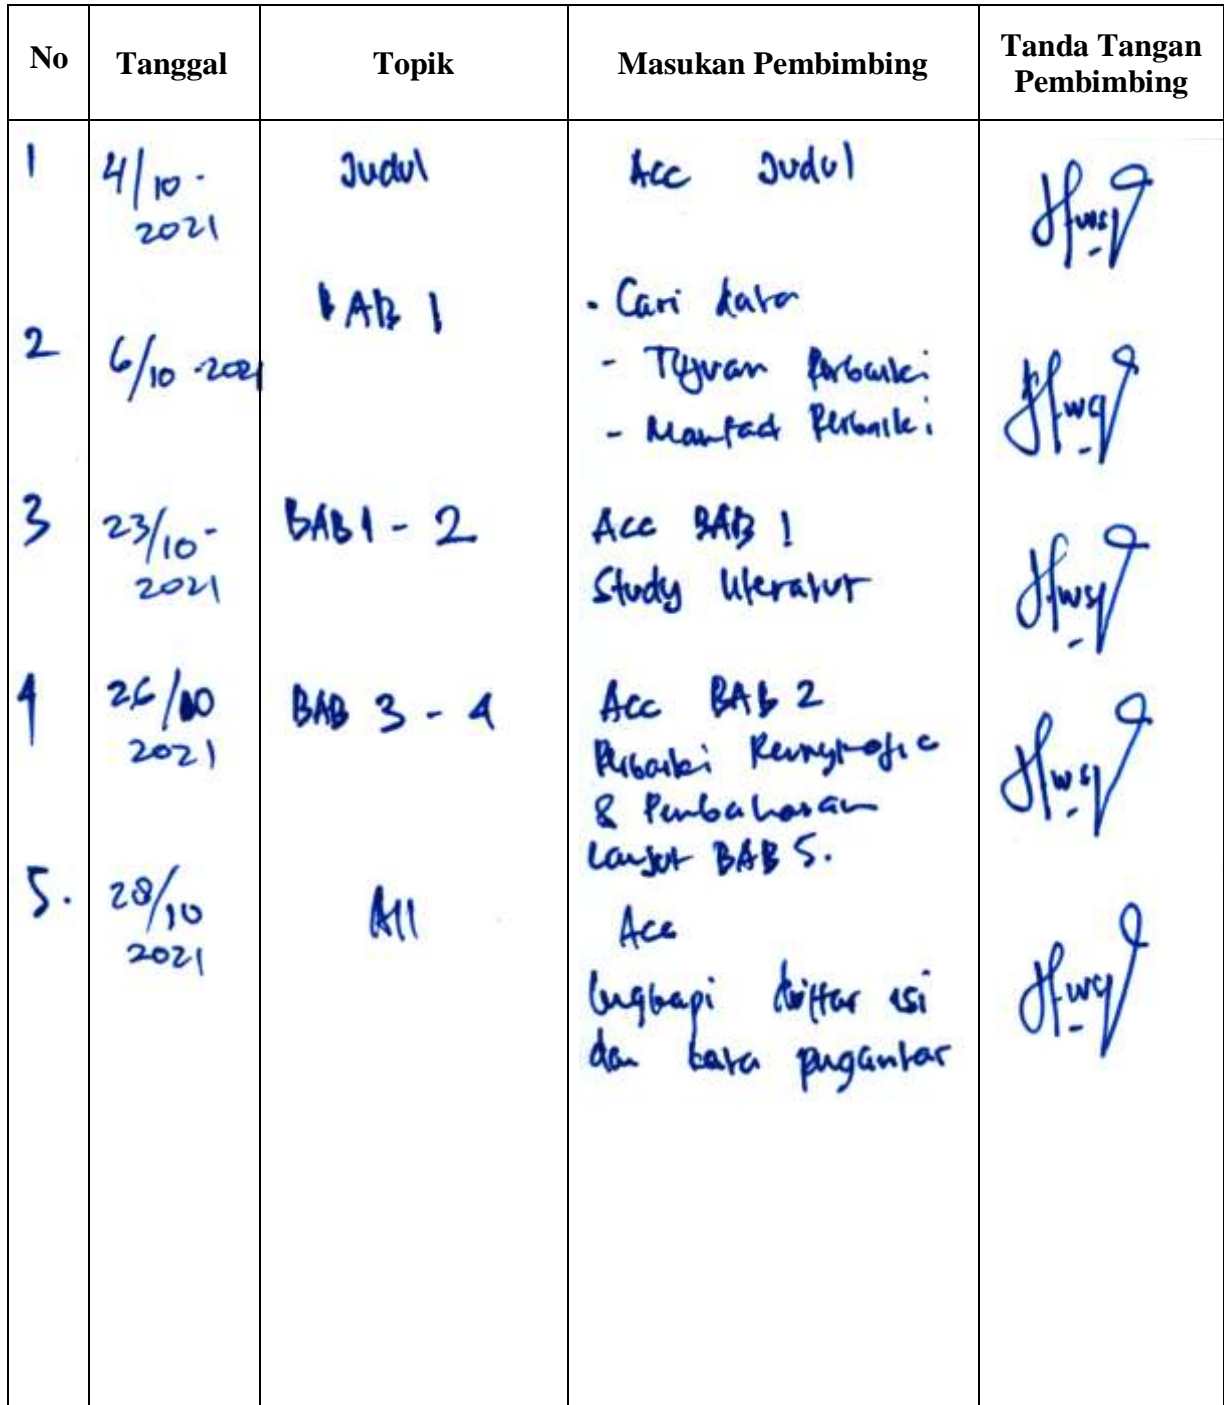 No Tanggal Topik Masukan Pembimbing Tanda Tangan Pembimbing
1 4/10- 2021 Judul Acc Judul
2 6/10-2021 BAB 1 - Cari data
- Tujuan Perbaiki
- Manfaat Perbaiki
3 23/10- 2021 BAB 1 - 2 Acc BAB 1
Study literatur
4 26/10 2021 BAB 3 - 4 Acc BAB 2
Perbaiki
& Pembahasan
Lanjut BAB 5.
5. 28/10 2021 All Acc
lengkapi daftar isi
dan kata pengantar